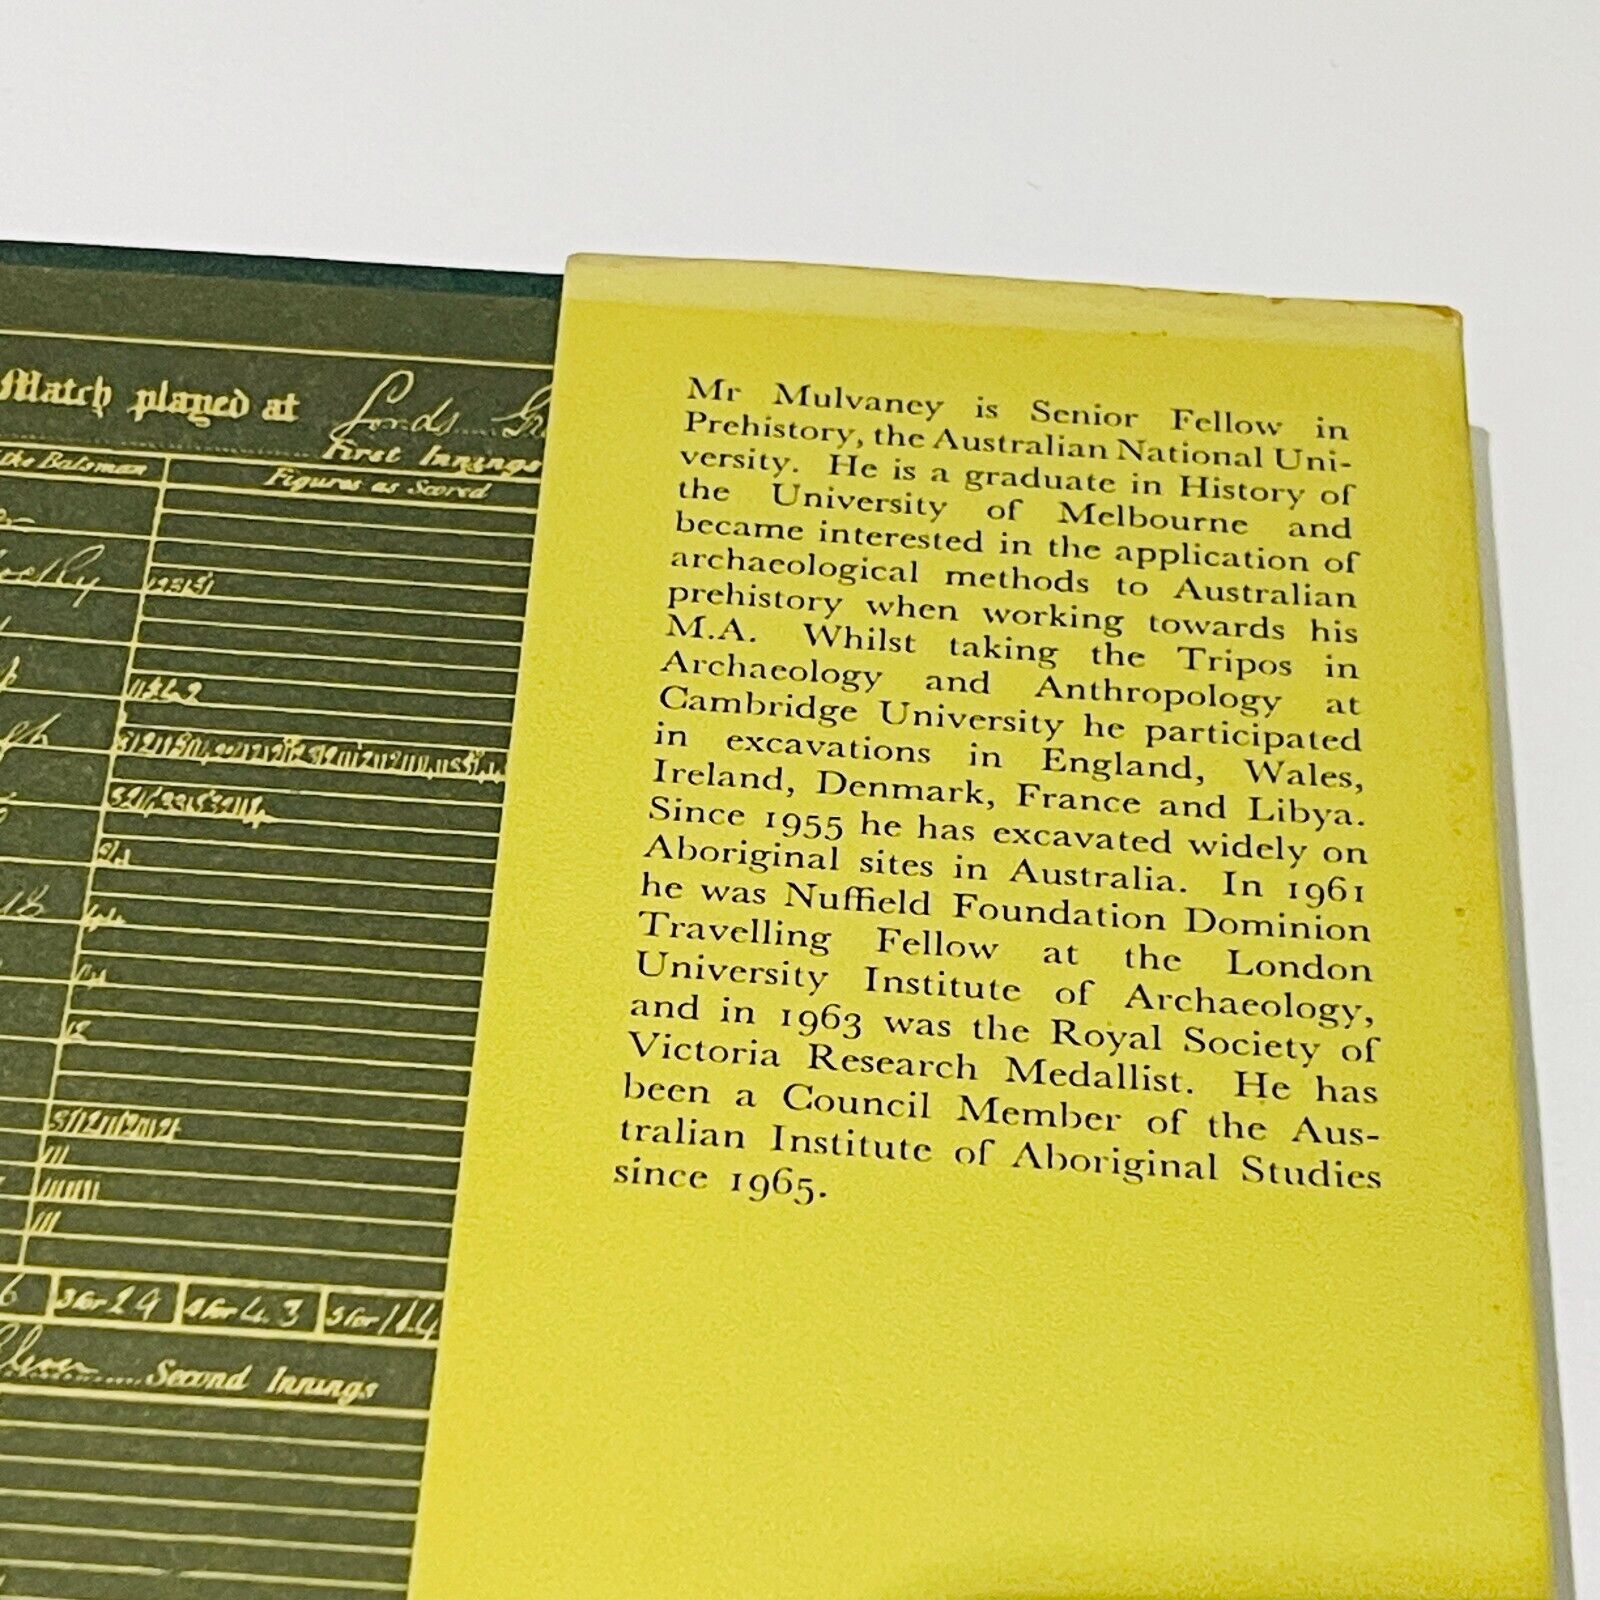 Match played at Lords
First Innings
the Batsman
Figures as Scored
3 for 29
4 for 43
5 for 114
Second Innings
Mr Mulvaney is Senior Fellow in
Prehistory, the Australian National Uni-
versity. He is a graduate in History of
the University of Melbourne and
became interested in the application of
archaeological methods to Australian
prehistory when working towards his
M.A. Whilst taking the Tripos in
Archaeology and Anthropology at
Cambridge University he participated
in excavations in England, Wales,
Ireland, Denmark, France and Libya.
Since 1955 he has excavated widely on
Aboriginal sites in Australia. In 1961
he was Nuffield Foundation Dominion
Travelling Fellow at the London
University Institute of Archaeology,
and in 1963 was the Royal Society of
Victoria Research Medallist. He has
been a Council Member of the Aus-
tralian Institute of Aboriginal Studies
since 1965.